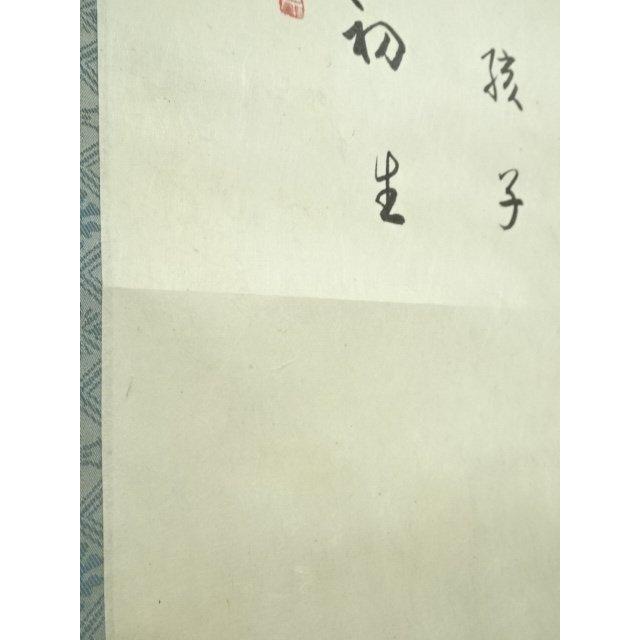 孩子
初生